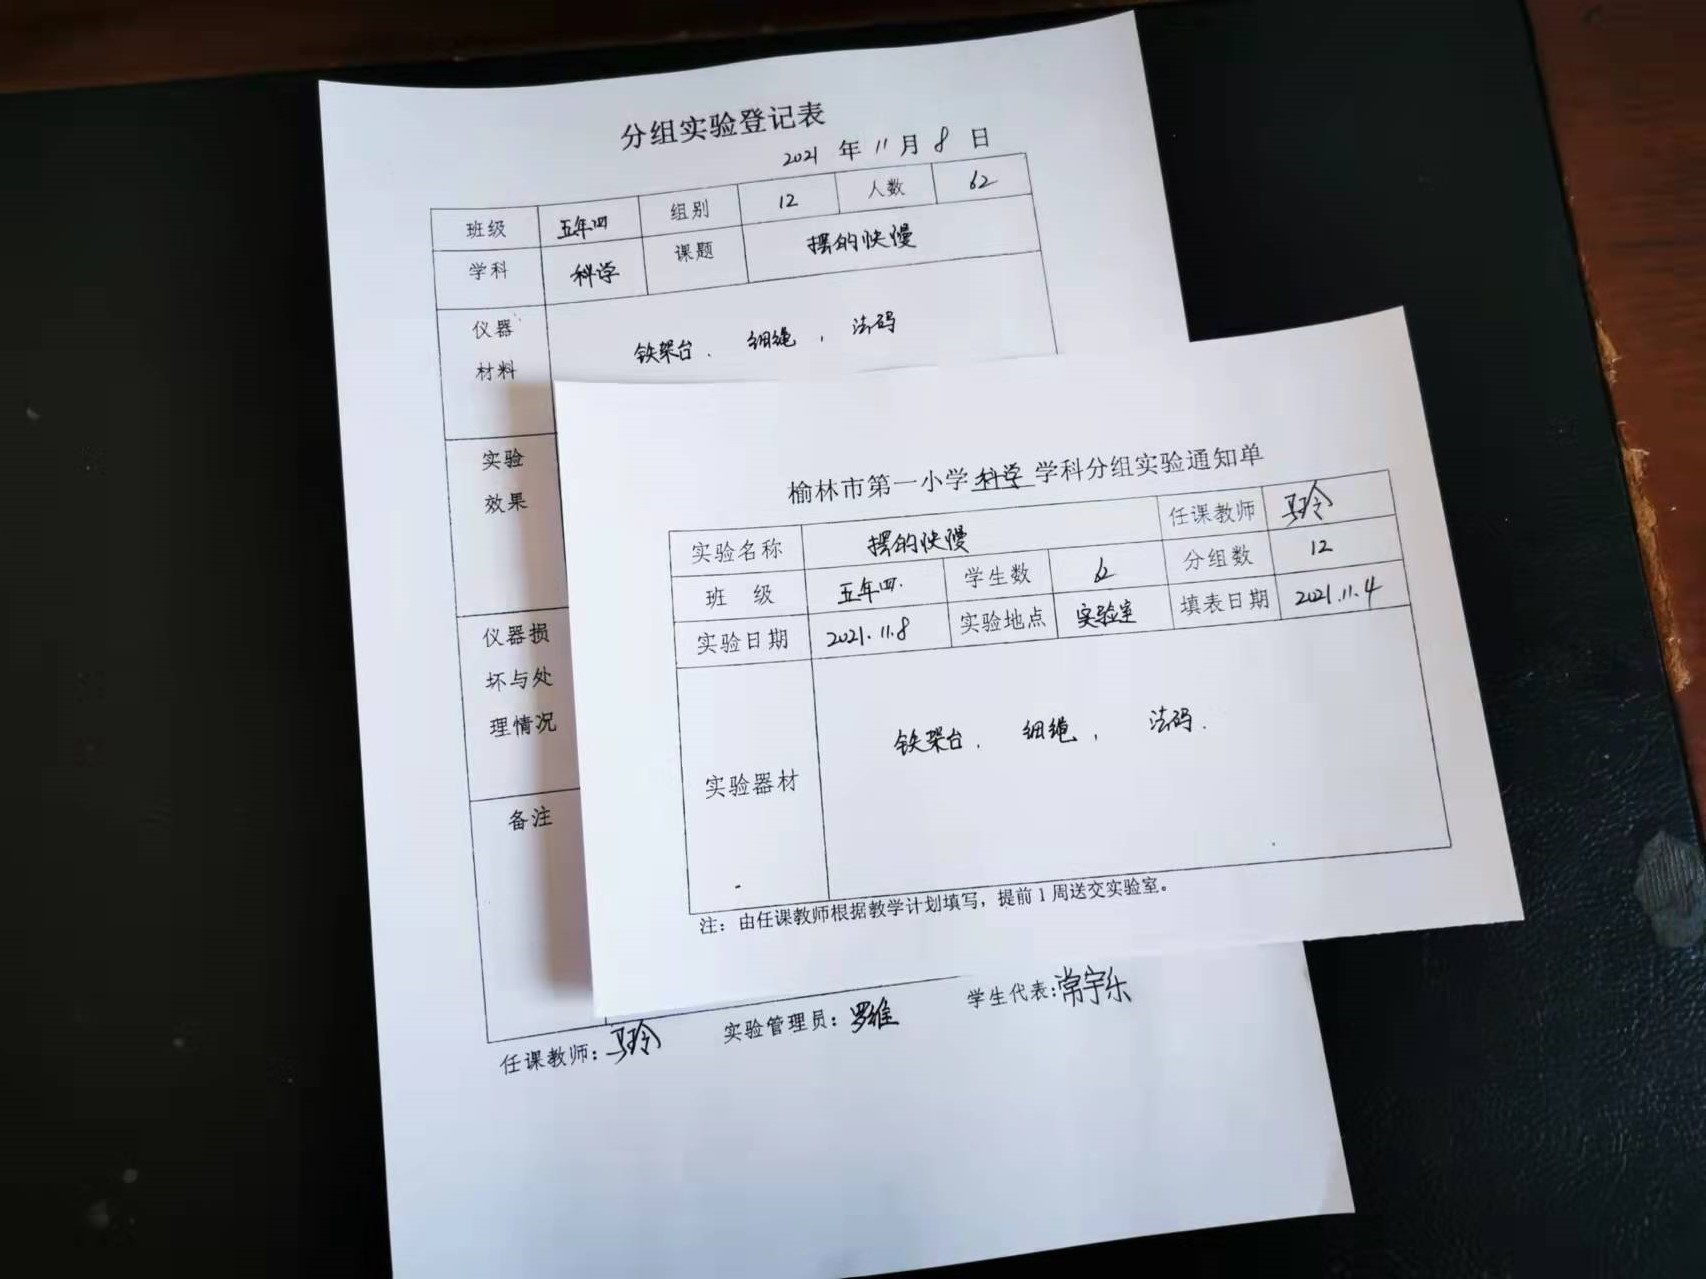 分组实验登记表
2021 年 11 月 8 日
班级 五年四 组别 12 人数 62
学科 科学 课题 摆的快慢
仪器 铁架台、细绳，法码
材料
实验
效果
仪器损
坏与处
理情况
备注
任课教师：马玲 实验管理员：罗维 学生代表：常宇乐
榆林市第一小学 科学 学科分组实验通知单
实验名称 摆的快慢 任课教师 马玲
班 级 五年四. 学生数 62 分组数 12
实验日期 2021.11.8 实验地点 实验室 填表日期 2021.11.4
实验器材 铁架台、细绳，法码.
注：由任课教师根据教学计划填写，提前1周送交实验室。